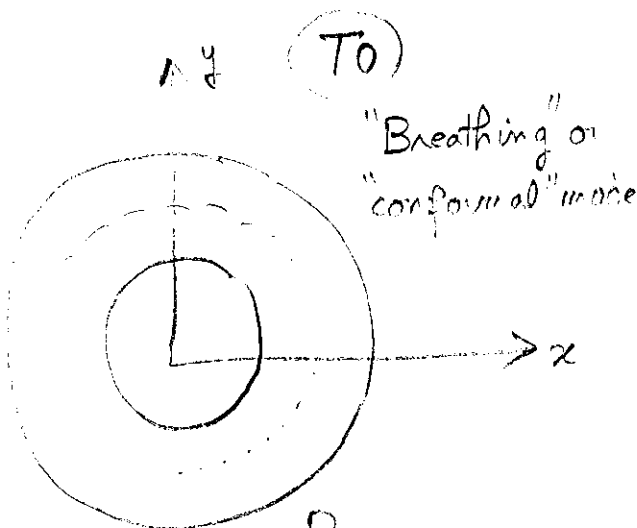 y
T0
"Breathing" or
"conformal" mode
x